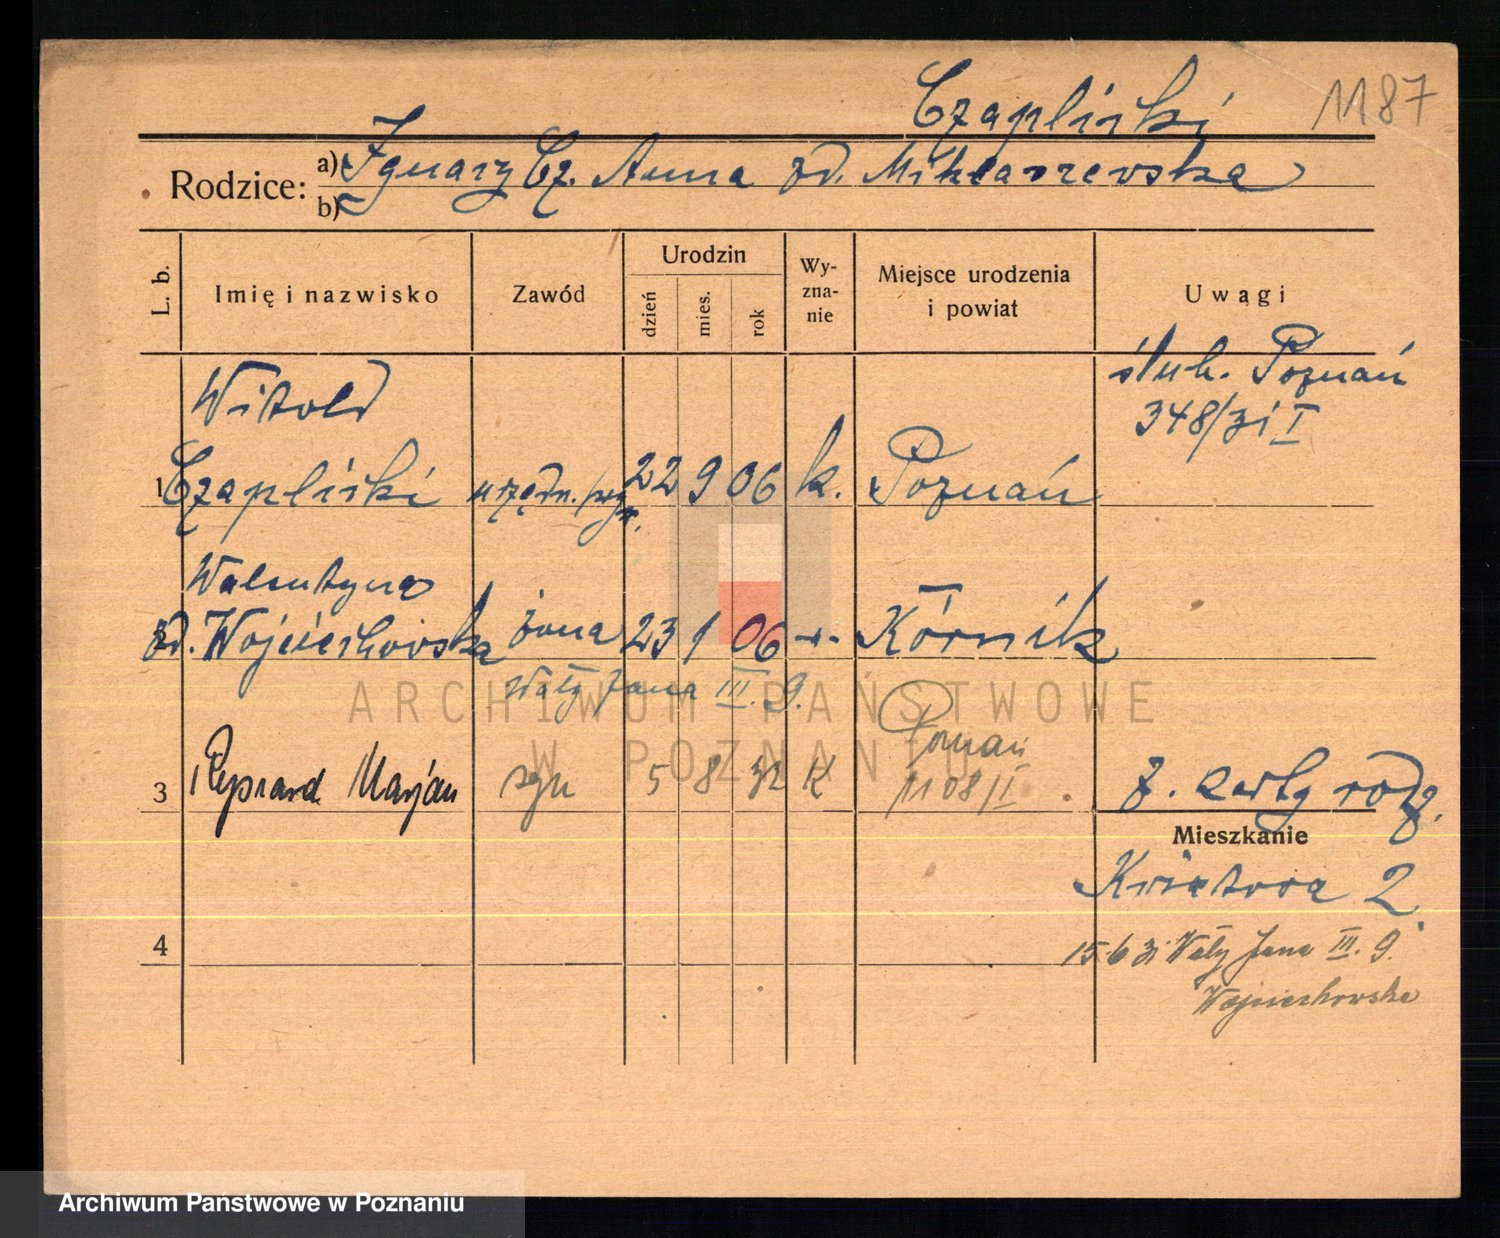 Czapliski 1187
Rodzice: a) Ignacy Cz. Anna zd. Miklaszewska
b)
L. b.
Imię i nazwisko
Zawód
Urodzin
dzień
mies.
rok
Wy-
zna-
nie
Miejsce urodzenia
i powiat
Uwagi
ślub. Poznań
348/31 I
Witold
1 Czapliski urzędn. 22 9 06 k. Poznań
Walentyna
zd. Wojciechowska żona 23 1 06 -"- Kórnik
Wały Jana III. 9.
3 Ryszard Marjan syn 5 8 32 K Poznań
1108/II
z. karty rodz.
Mieszkanie
Kwiatowa 2.
4
15 6 31 Wały Jana III. 9.
Wojciechowska
ARCHIWUM PAŃSTWOWE
W POZNANIU
Archiwum Państwowe w Poznaniu